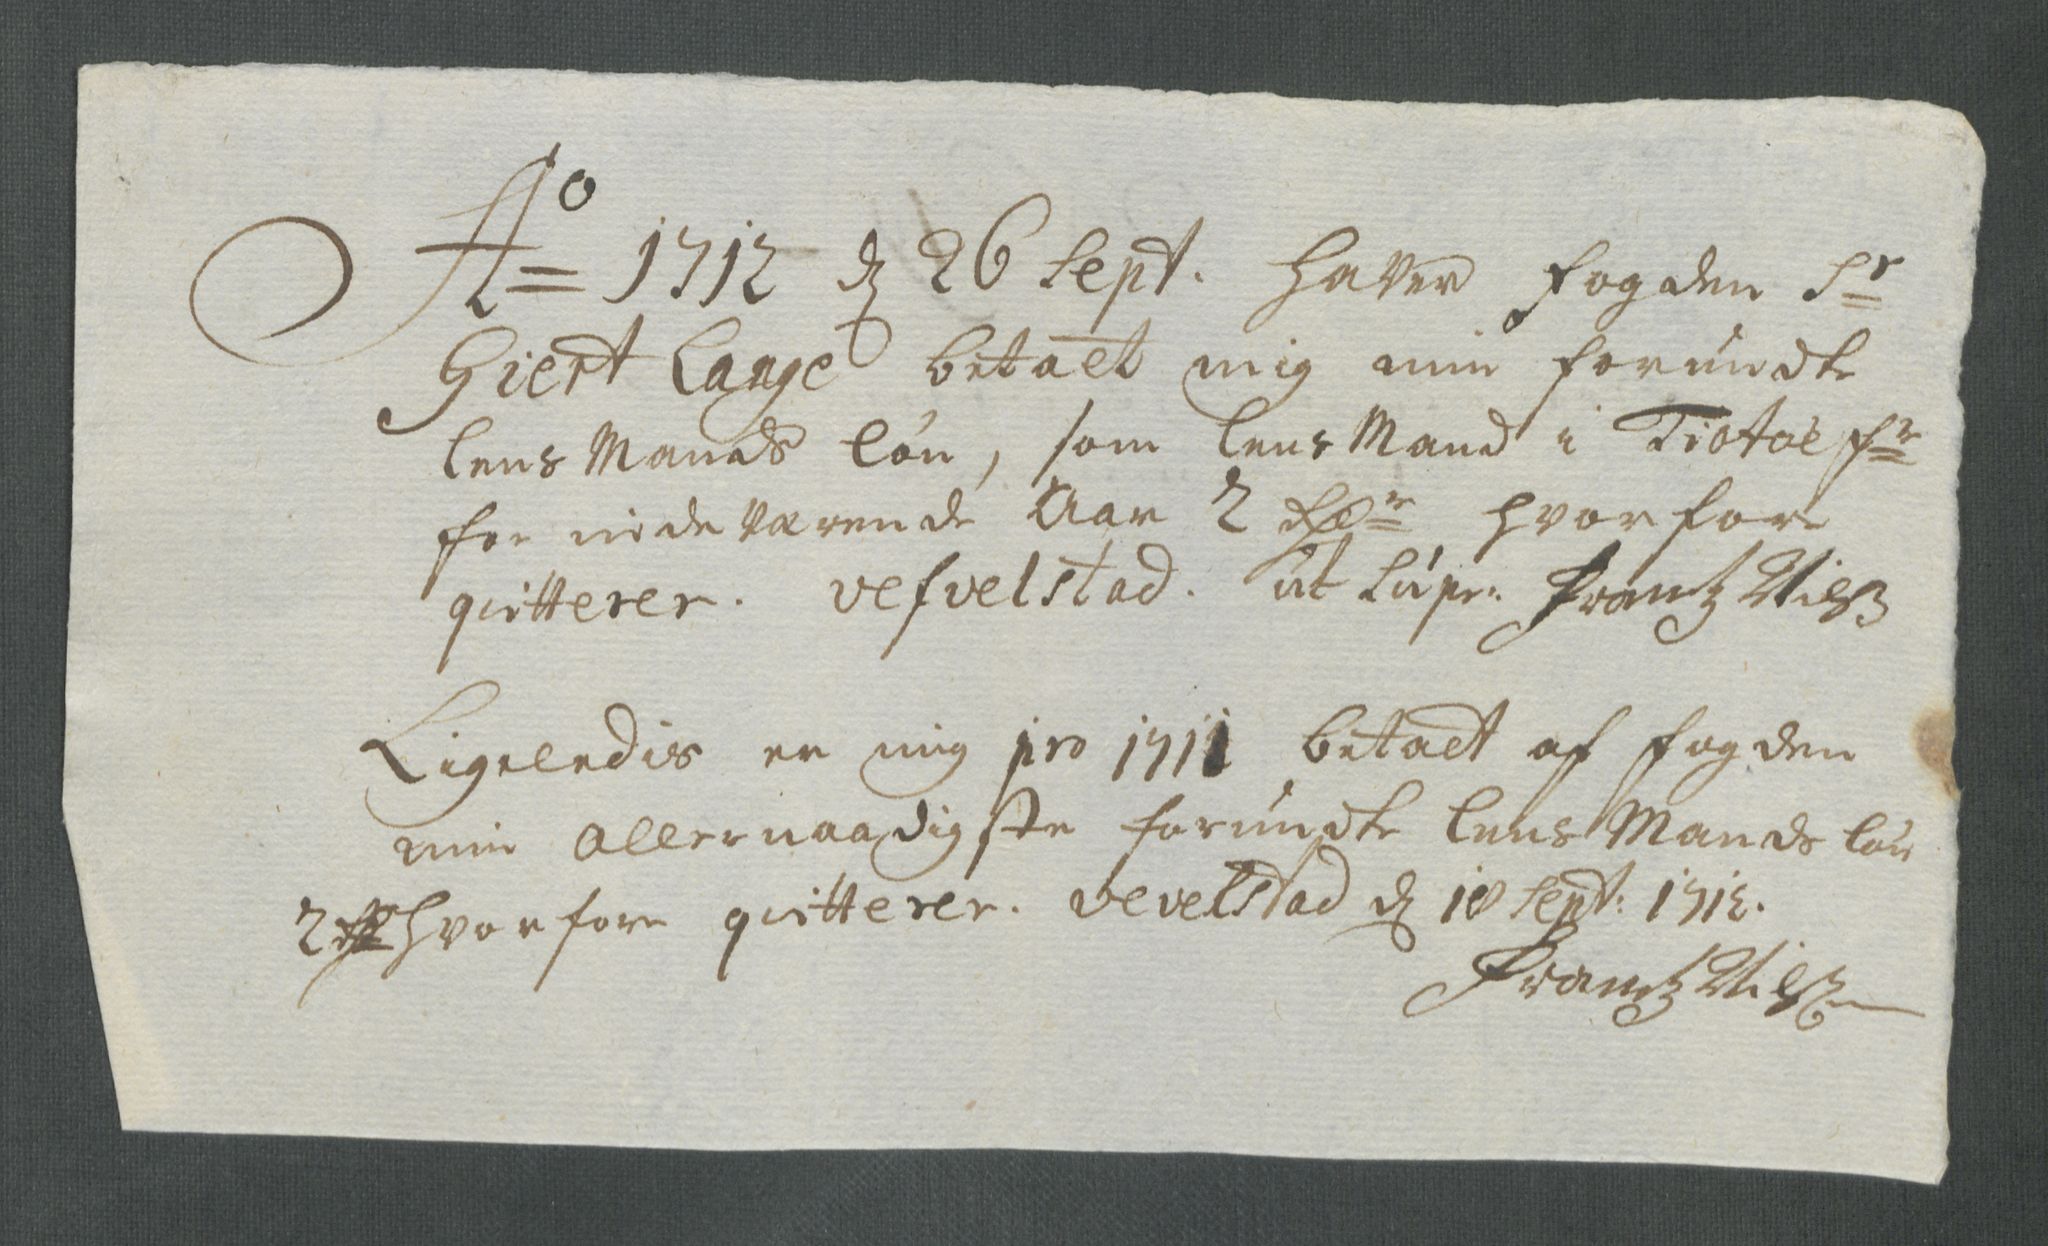 Ao 1712 d 26 Sept. haver fogden Sr
Giert Lange betalt mig min forundte
lens Mands løn, som lens Mand i Tiøtøe fr
for nerværende Aar 2 rdr hvorfore
qvitterer. Vefvelstad. ut supr: Frantz Nilß
Ligeledis er mig pro 1711 betalt af fogden
min allernaadigste forundte lens Mands løn
2 rdr hvorfore qvitterer. Vevelstad d 18 Sept: 1712.
Frantz Nilß